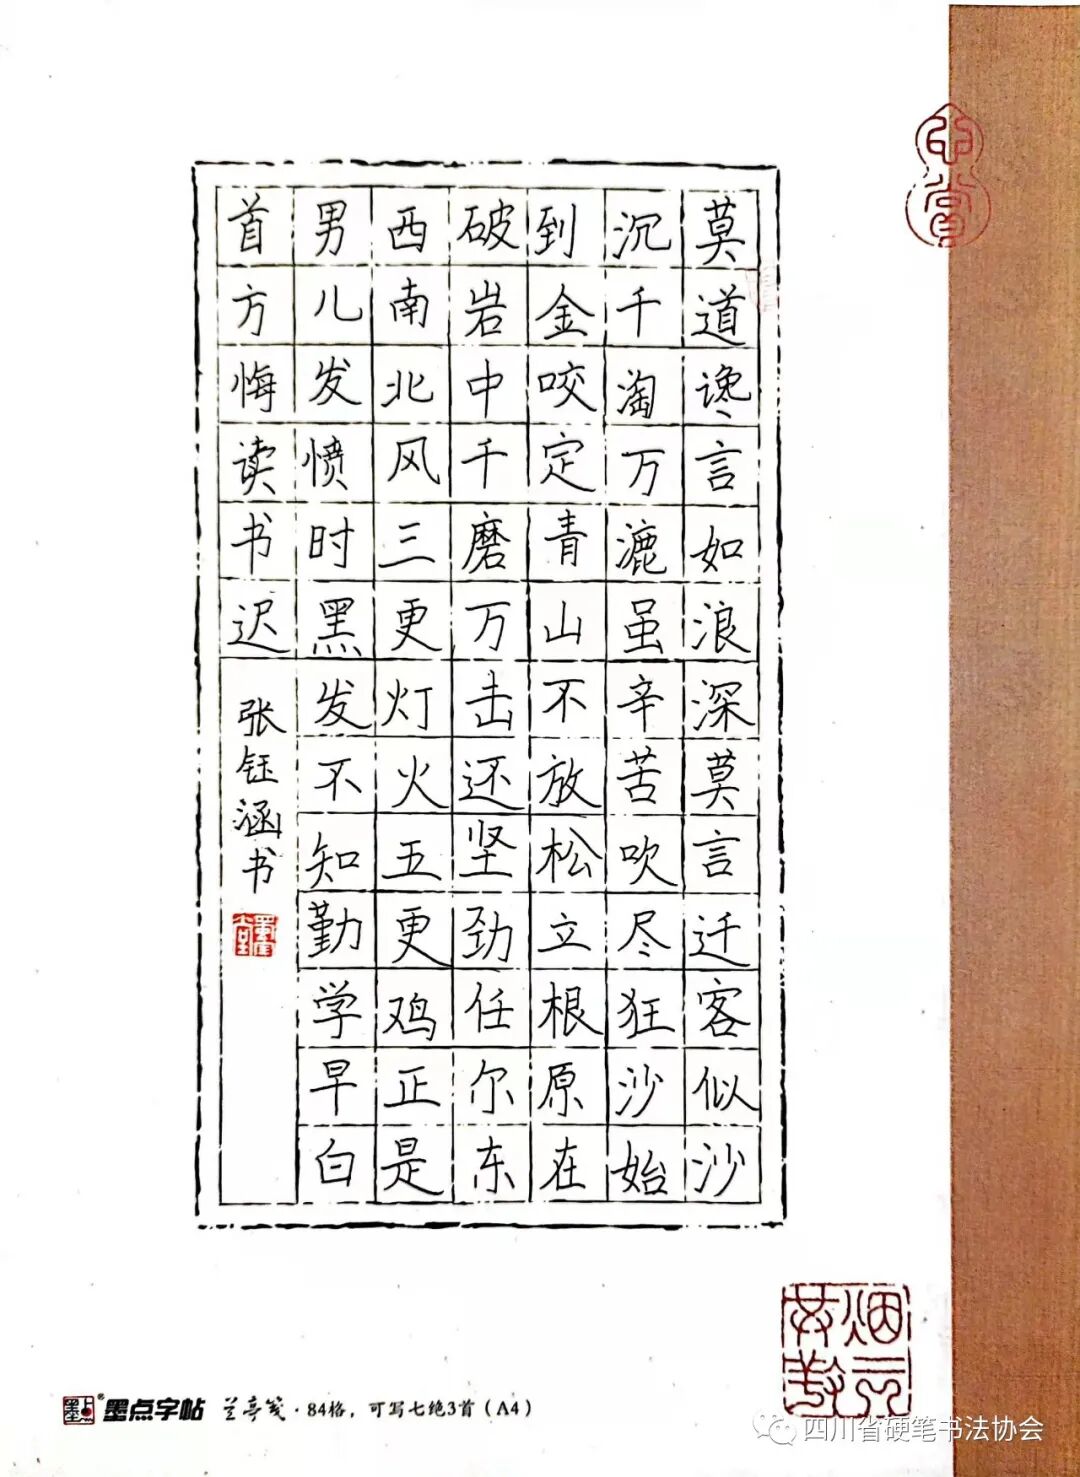 莫道谗言如浪深莫言迁客似沙
沉千淘万漉虽辛苦吹尽狂沙始
到金咬定青山不放松立根原在
破岩中千磨万击还坚劲任尔东
西南北风三更灯火五更鸡正是
男儿发愤时黑发不知勤学早白
首方悔读书迟
张钰涵书
墨点字帖 兰亭笺·84格，可写七绝3首（A4）
四川省硬笔书法协会